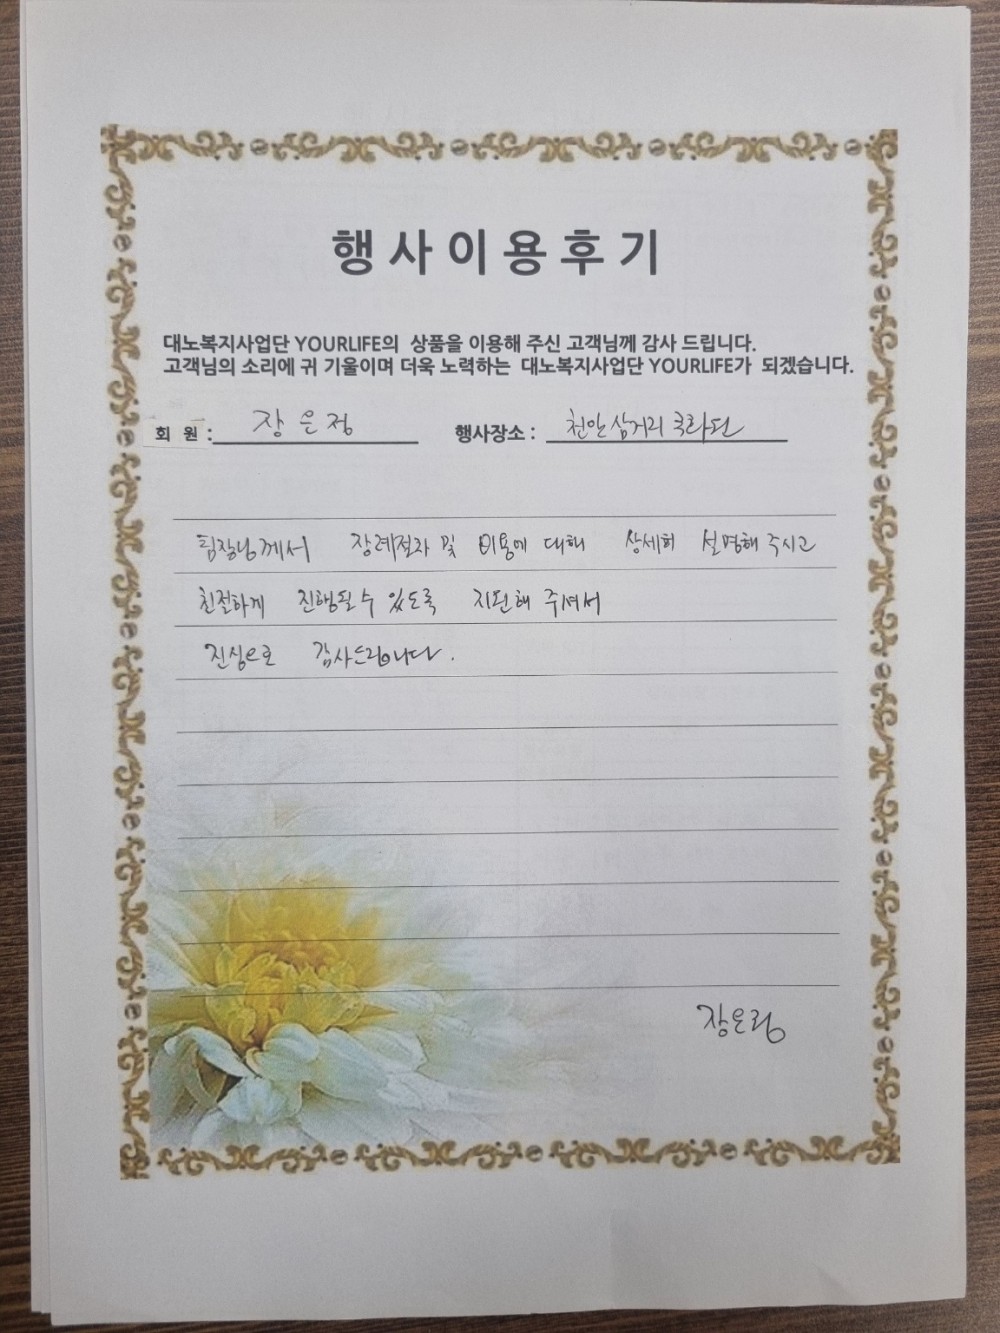 행사이용후기
대노복지사업단 YOURLIFE의 상품을 이용해 주신 고객님께 감사 드립니다.
고객님의 소리에 귀 기울이며 더욱 노력하는 대노복지사업단 YOURLIFE가 되겠습니다.
회 원 : 장은정 행사장소 : 천안삼거리 국화원
팀장님께서 장례절차 및 비용에 대해 상세히 설명해 주시고
친절하게 진행될 수 있도록 지원해 주셔서
진심으로 감사드립니다.
장은정